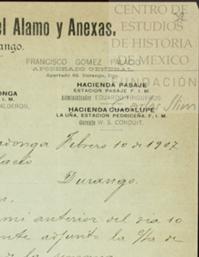 el Alamo y Anexas.
ango.
CENTRO DE
ESTUDIOS
DE HISTORIA
DE MEXICO
FUNDACIÓN
Carlos Slim
FRANCISCO GOMEZ PALACIO
APODERADO GENERAL
Apartado 66. Durango, Dgo.
HACIENDA PASAJE
ESTACION PASAJE F. I. M.
Administrador EDUARDO
ONGA
F. I. M.
CALDERON,
HACIENDA GUADALUPE
LA UÑA, ESTACION PEDRICEÑA F. I. M.
Gerente W. S. CONDUIT.
donga Febrero 10 de 1907
lacio
Durango.
mi anterior del dia 10
ente adjunto la